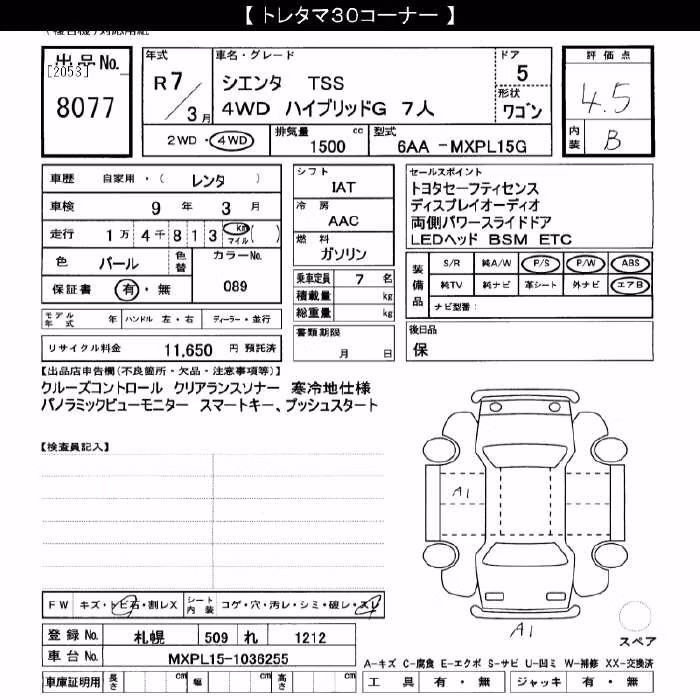 【 トレタマ30コーナー 】
出品No.
[2053]
8077
年式
R7/3月
車名・グレード
シエンタ TSS
4WD ハイブリッドG 7人
ドア
5
形状
ワゴン
2WD・4WD
排気量 1500 cc
型式 6AA -MXPL15G
評価点
4.5
内装 B
車歴 自家用・( レンタ )
車検 9年 3月
走行 1万4千813 km マイル ( )
色 パール 色替 カラーNo. 089
保証書 有・無
モデル年式 年 ハンドル 左・右 ディーラー・並行
リサイクル料金 11,650 円 預託済
シフト
IAT
冷房
AAC
燃料
ガソリン
乗車定員 7 名
積載量 kg
総重量 kg
書類期限
月 日
セールスポイント
トヨタセーフティセンス
ディスプレイオーディオ
両側パワースライドドア
LEDヘッド BSM ETC
装備品
S/R 純A/W P/S P/W ABS
純TV 純ナビ 革シート 外ナビ エアB
ナビ型番:
後日品
保
【出品店申告欄(不良箇所・欠品・注意事項等)】
クルーズコントロール クリアランスソナー 寒冷地仕様
パノラミックビューモニター スマートキー、プッシュスタート
【検査員記入】
A1
A1
スペア
FW キズ・トビ石・割レX シート内装 コゲ・穴・汚レ・シミ・破レ・スレ
登録No. 札幌 509 れ 1212
車台No. MXPL15-1036255
車庫証明用 長さ cm 幅 cm 高さ cm
A-キズ C-腐食 E-エクボ S-サビ U-凹ミ W-補修 XX-交換済
工具 有・無 ジャッキ 有・無